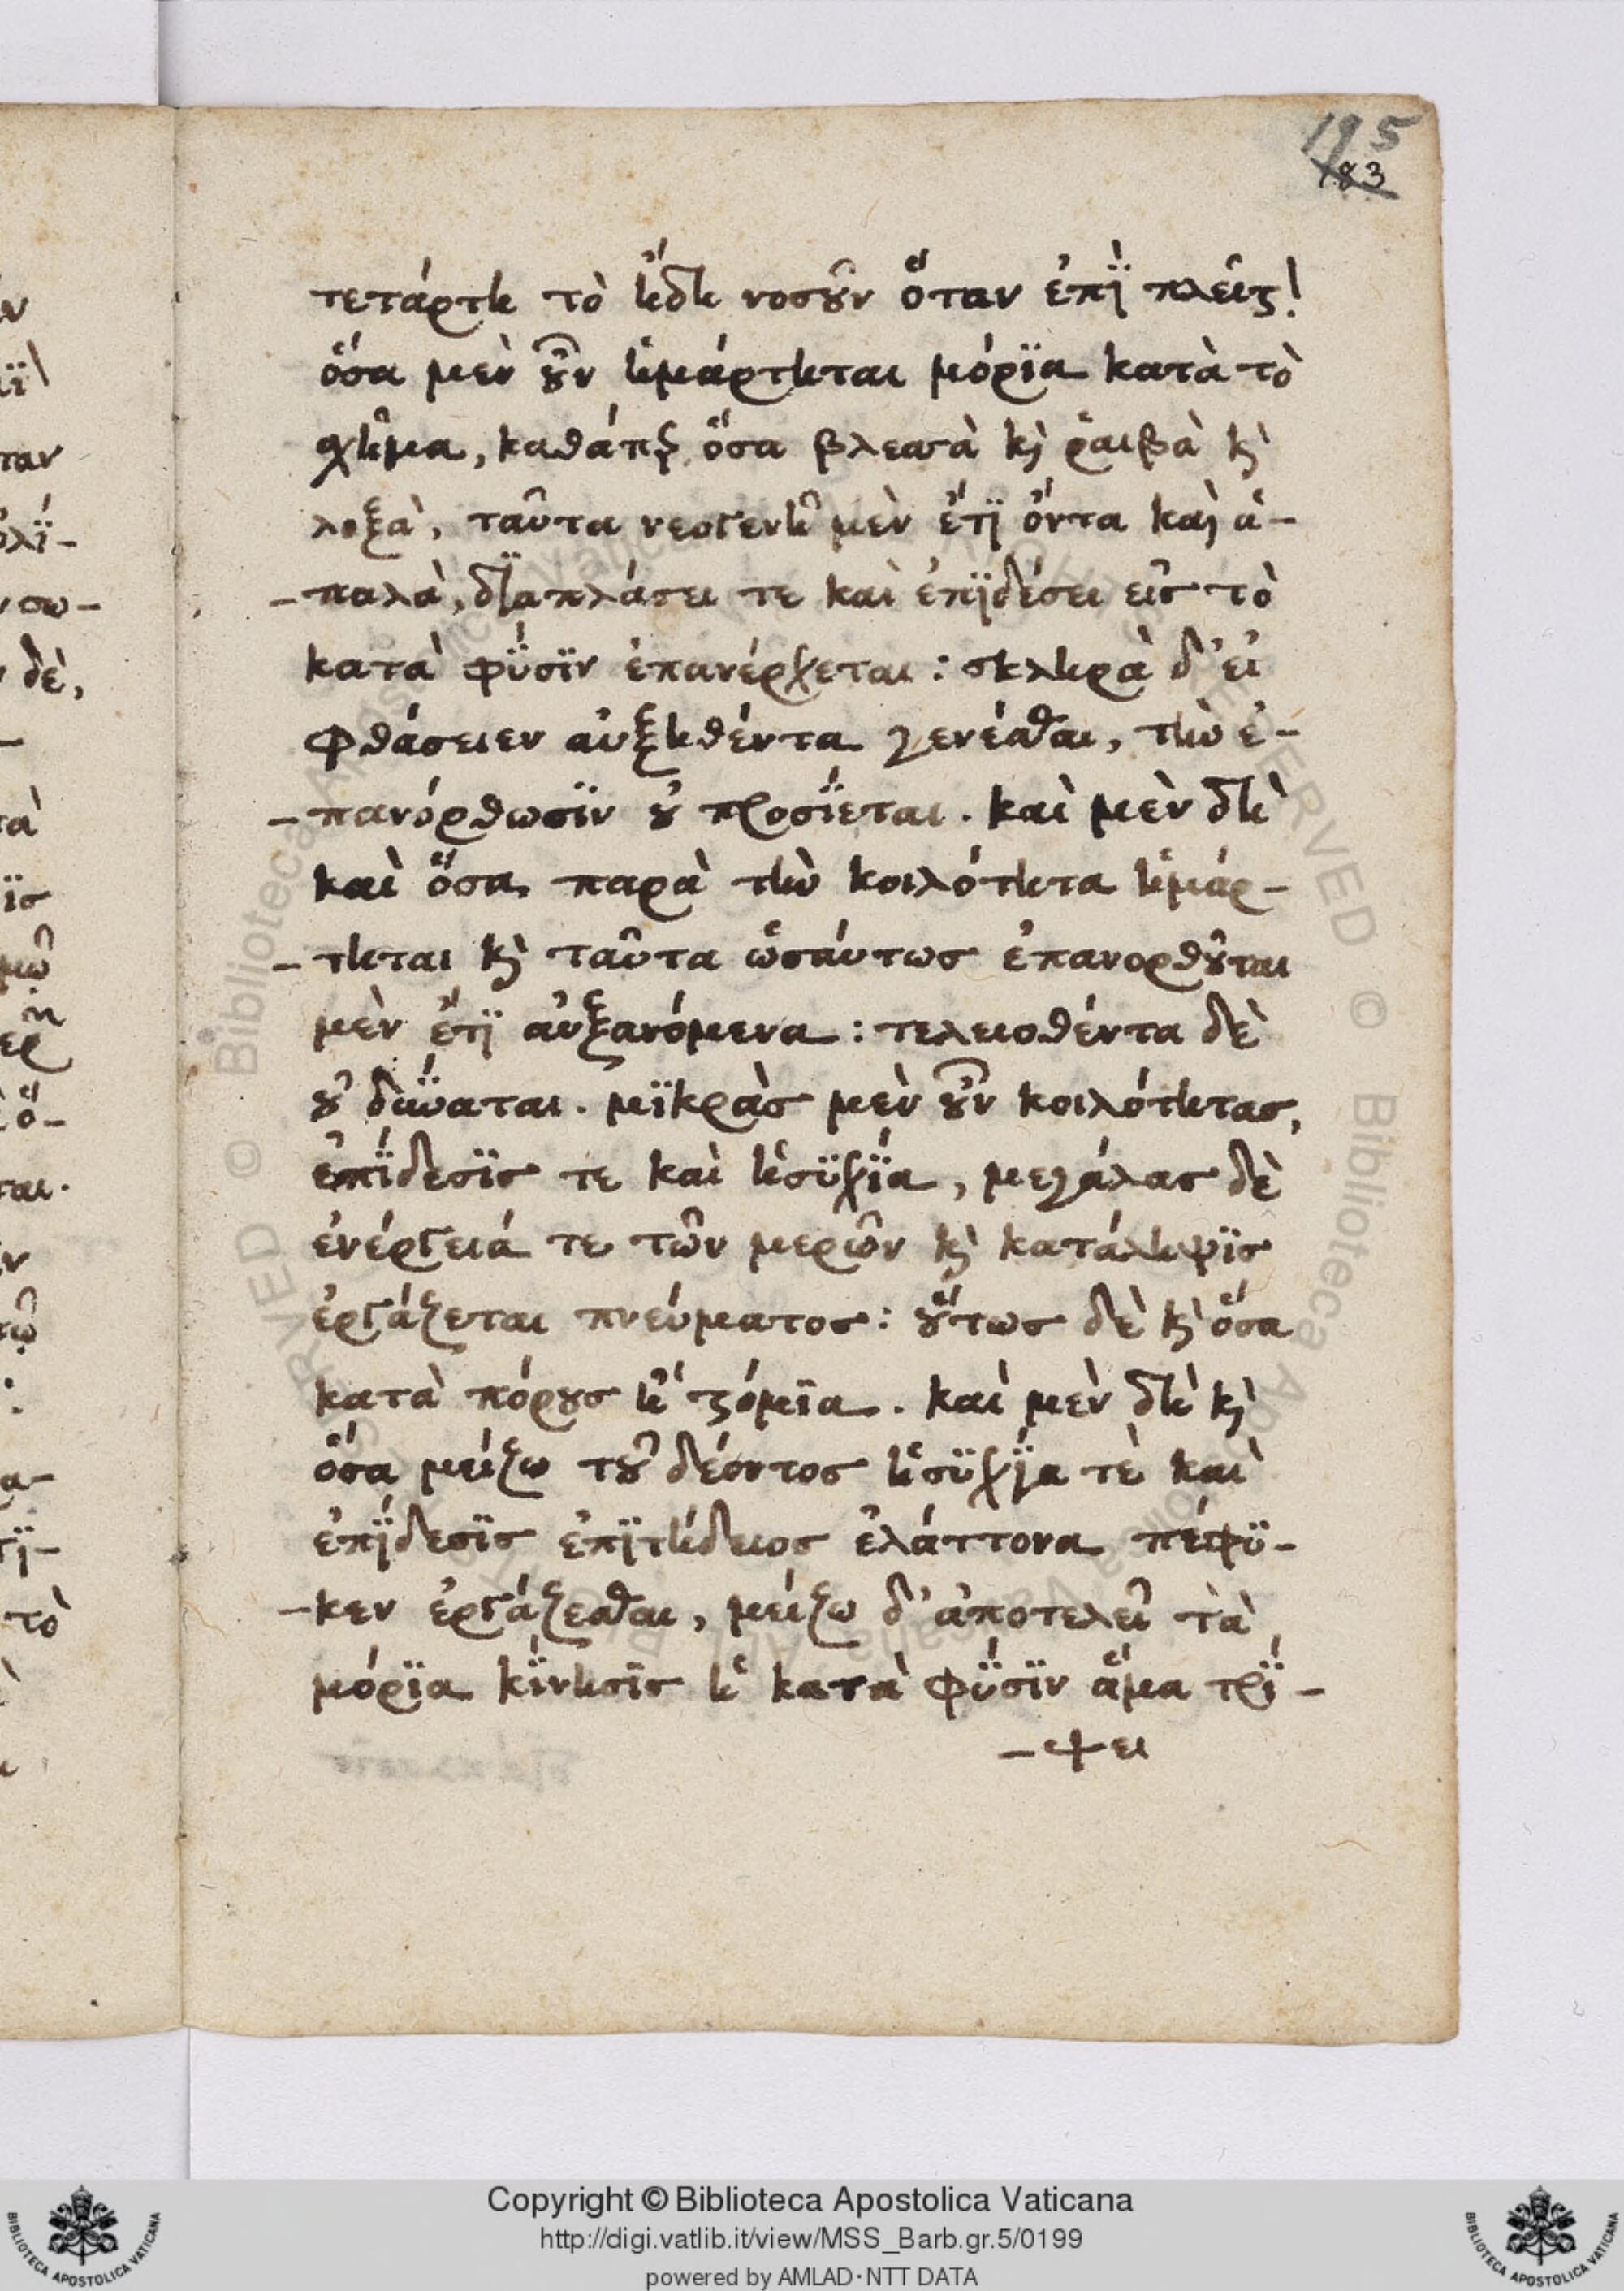 195
183
τετάρτη τὸ ἤδη νοσοῦν ὅταν ἐπῒ πλεῖς!
ὅσα μεν οὖν ἡμάρτηται μόρϊα κατὰ τὸ
σχῆμα, καθάπερ ὅσα βλεσὰ κὶ ῥαιβὰ κὶ
λοξὰ, ταῦτα νεογενῆ μὲν ἔτϊ ὄντα καὶ ἁ-
-παλὰ, δϊαπλάσει τε καὶ ἐπϊδέσει εἰς τὸ
κατὰ φΰσϊν ἐπανέρχεται: σκληρὰ δ' εἰ
φθάσειεν αὐξηθέντα γενέσθαι, τὴν ἐ-
-πανόρθωσϊν οὐ προσΐεται. καὶ μὲν δὴ
καὶ ὅσα παρὰ τὴν κοιλότητα ἡμάρ-
-τηται κὶ ταῦτα ὡσαύτως ἐπανορθοῦται
μὲν ἔτϊ αὐξανόμενα: τελειοθέντα δὲ
οὐ δΰναται. μϊκρὰς μὲν οὖν κοιλότητας,
ἐπΐδεσϊς τε καὶ ἡσϋχΐα, μεγάλας δὲ
ἐνέργειά τε τῶν μερῶν κὶ κατάληψϊς
ἐργάζεται πνεύματος: οὕτως δὲ κὶ ὅσα
κατὰ πόρους ἢ στόμϊα. καὶ μὲν δὴ κὶ
ὅσα μείζω τοῦ δέοντος ἡσϋχΐα τὲ καὶ
ἐπΐδεσϊς ἐπϊτήδειος ἐλάττονα πέφϋ-
-κεν ἐργάζεσθαι, μείζω δ' ἀποτελεῖ τὰ
μόρϊα κΐνησϊς ἡ κατὰ φΰσϊν ἅμα τρΐ-
-ψει
Copyright © Biblioteca Apostolica Vaticana
http://digi.vatlib.it/view/MSS_Barb.gr.5/0199
powered by AMLAD·NTT DATA